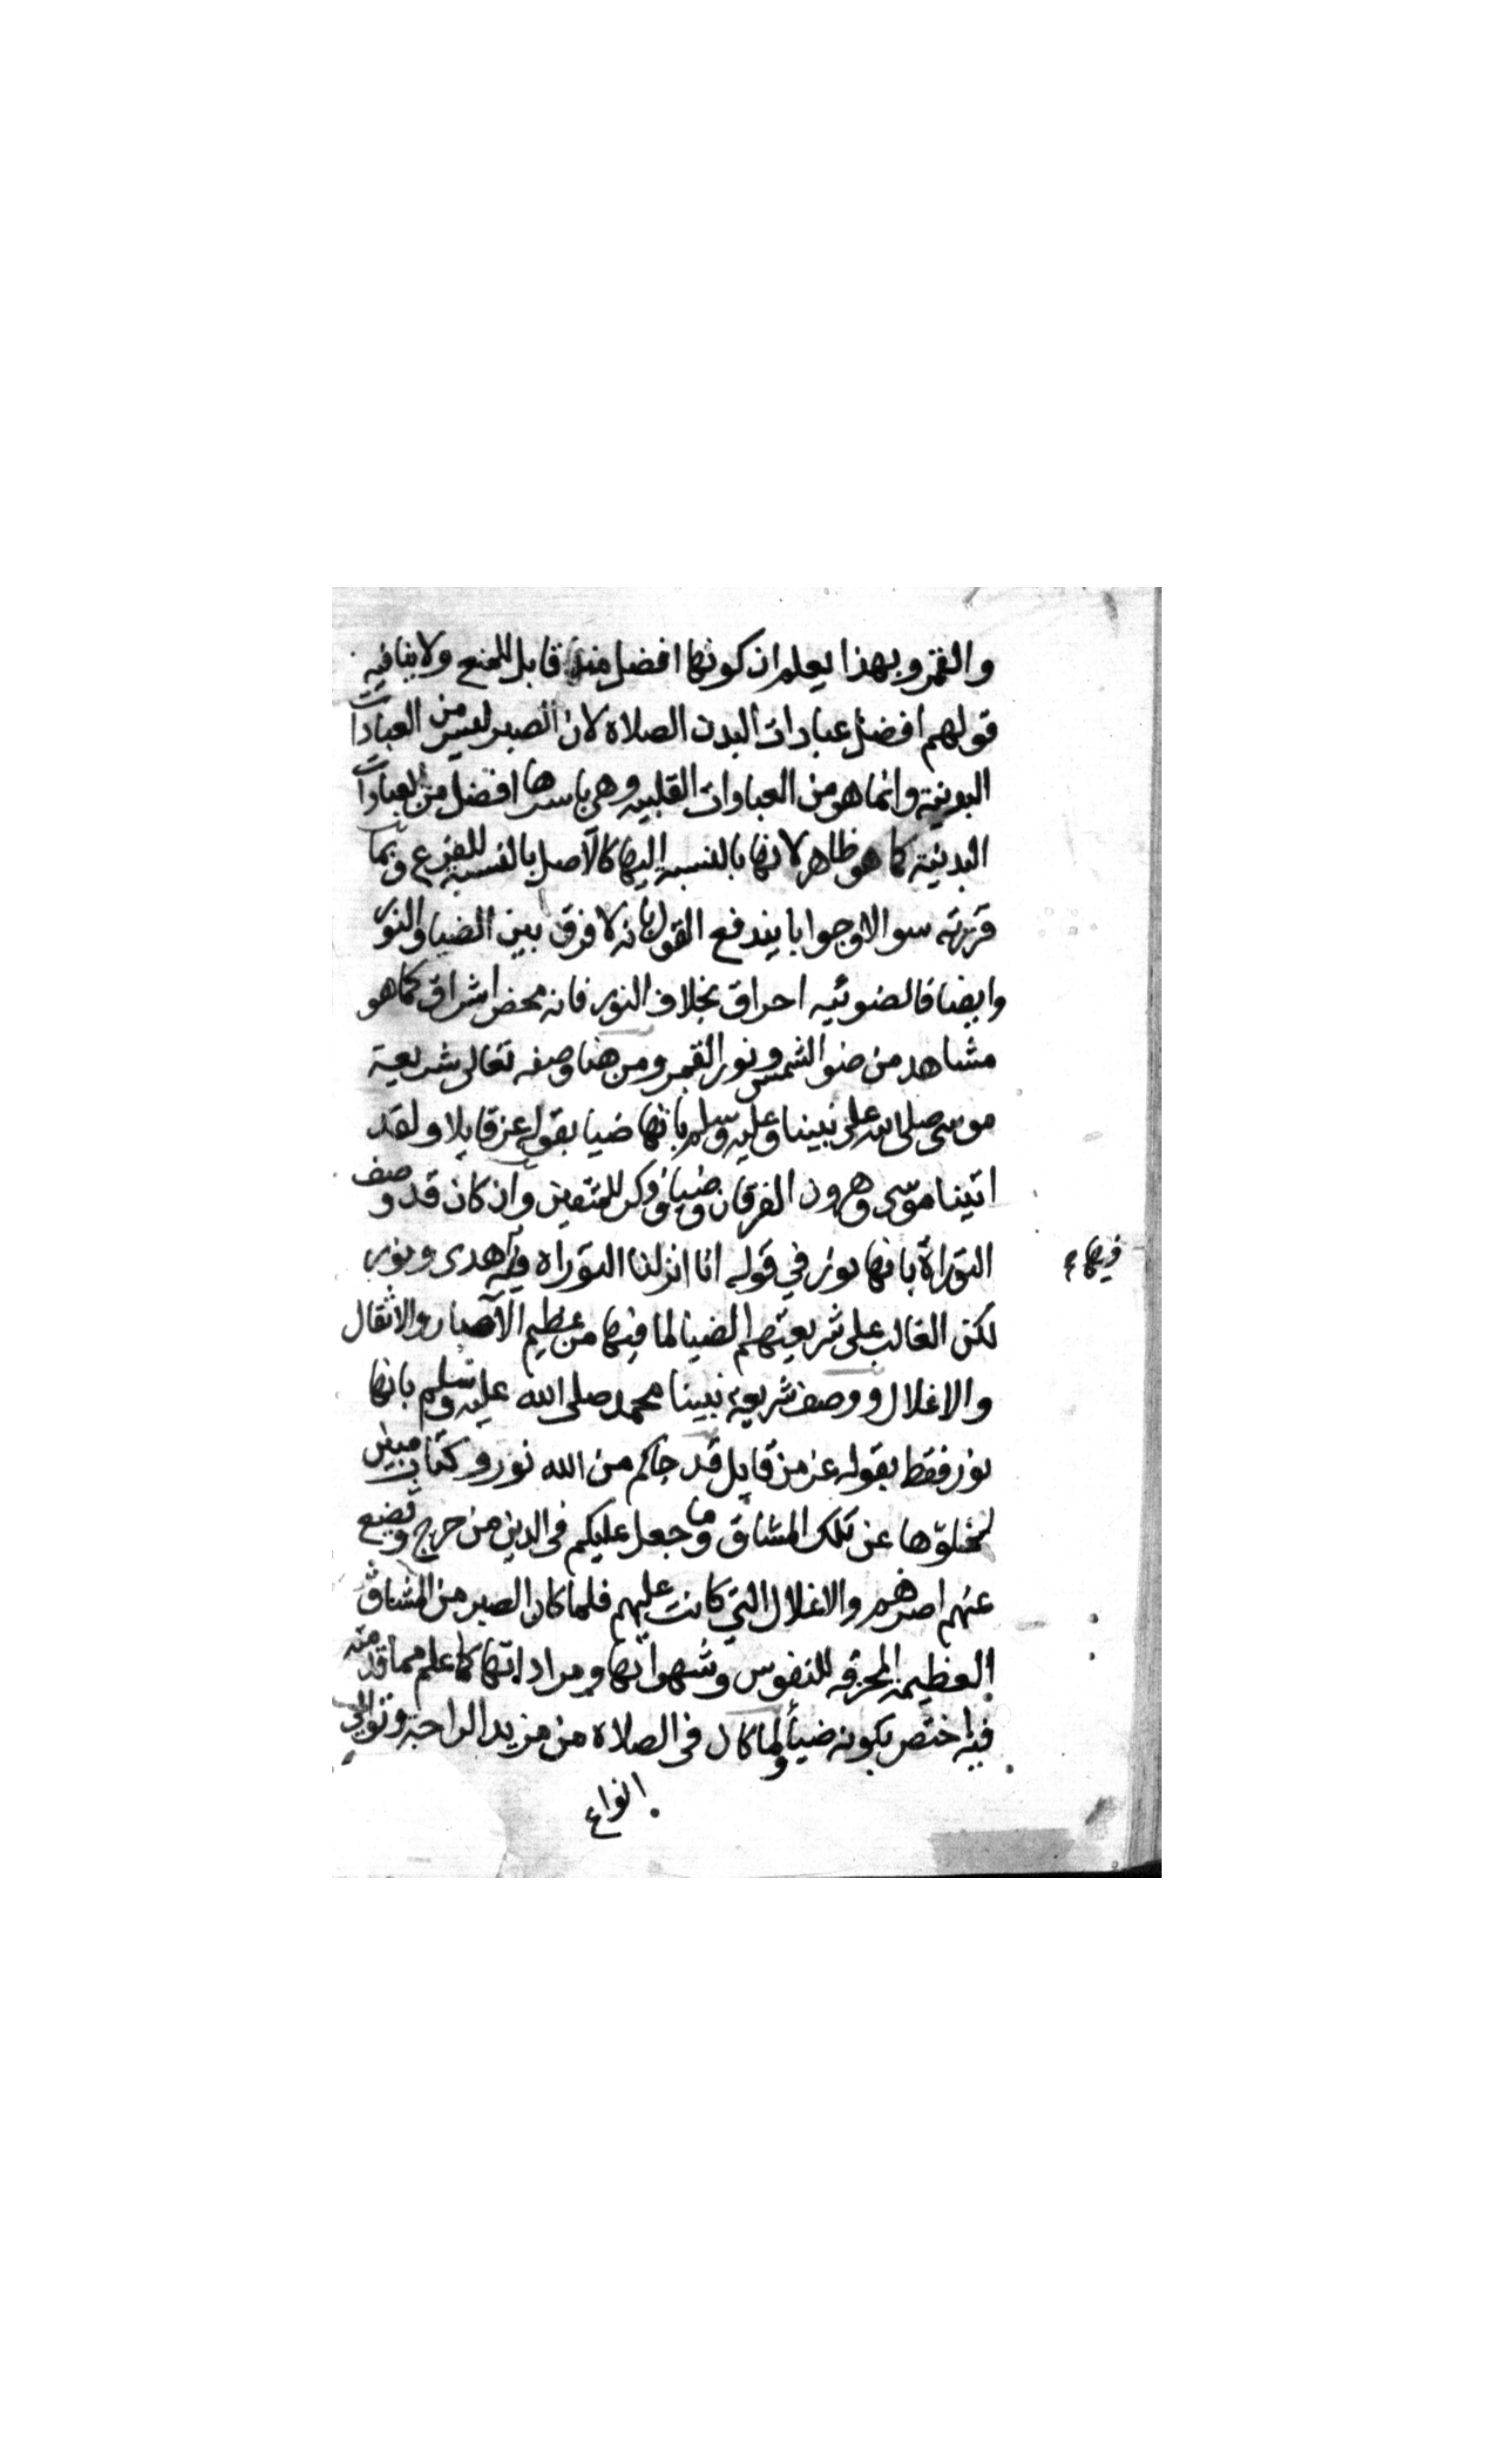 والقمر وبهذا يعلم ان كونها افضل منه قابل للمنع ولا ينافيه
قولهم افضل عبادات البدن الصلاة لان الصبر ليس من العبادات
البدنية وانما هو من العبادات القلبيه وهي باسرها افضل من العبادات
البدنية كما هو ظاهر لانها بالنسبه اليها كالاصل بالنسبة للفرع وبما
قررته سوالا وجوابا يندفع القول بانه لا فرق بين الضيا والنور
وايضا فالضو فيه احراق بخلاف النور فانه محض اشراق كما هو
مشاهد من ضو الشمس ونور القمر ومن هنا وصف تعالى شريعة
موسى صلى الله على نبينا وعليه وسلم بانها ضيا بقوله عز قايلا ولقد
اتينا موسى وهرون الفرقان وضياء وذكرا للمتقين وان كان قد وصف
التوراة بانها نور في قوله انا انزلنا التوراه فيها هدى ونور
فيها
لكن الغالب على شريعتهم الضيا لما فيها من عظيم الآصار والاثقال
والاغلال ووصف شريعة نبينا محمد صلى الله عليه وسلم بانها
نور فقط بقوله عز من قايل قد جاكم من الله نور وكتاب مبين
لخلوّها عن تلك المشاق وما جعل عليكم في الدين من حرج ويضع
عنهم اصرهم والاغلال التي كانت عليهم فلما كان الصبر من المشاق
العظيمة المحرقه للنفوس وشهواتها ومراداتها كما علم مما قدمته
فيه اختص بكونه ضياء ولما كان في الصلاة من مزيد الراحة وتوالي
انواع